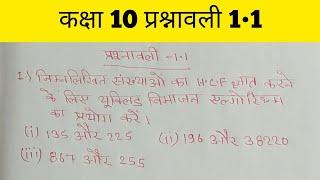 कक्षा 10 प्रश्नावली 1·1
प्रश्नावली -1.1
1) निम्नलिखित संख्याओं का H.C.F ज्ञात करने
के लिए यूक्लिड विभाजन एल्गोरिथ्म
का प्रयोग करें।
(i) 135 और 225 (ii) 196 और 38220
(iii) 867 और 255